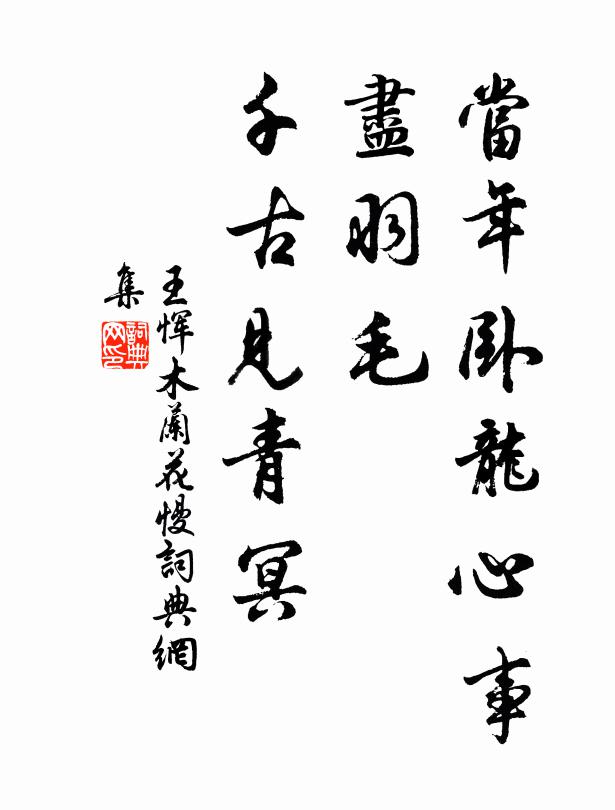 當年卧龍心事
盡羽毛
千古見青冥
王惲木蘭花慢詞典網
集
詞典
网印